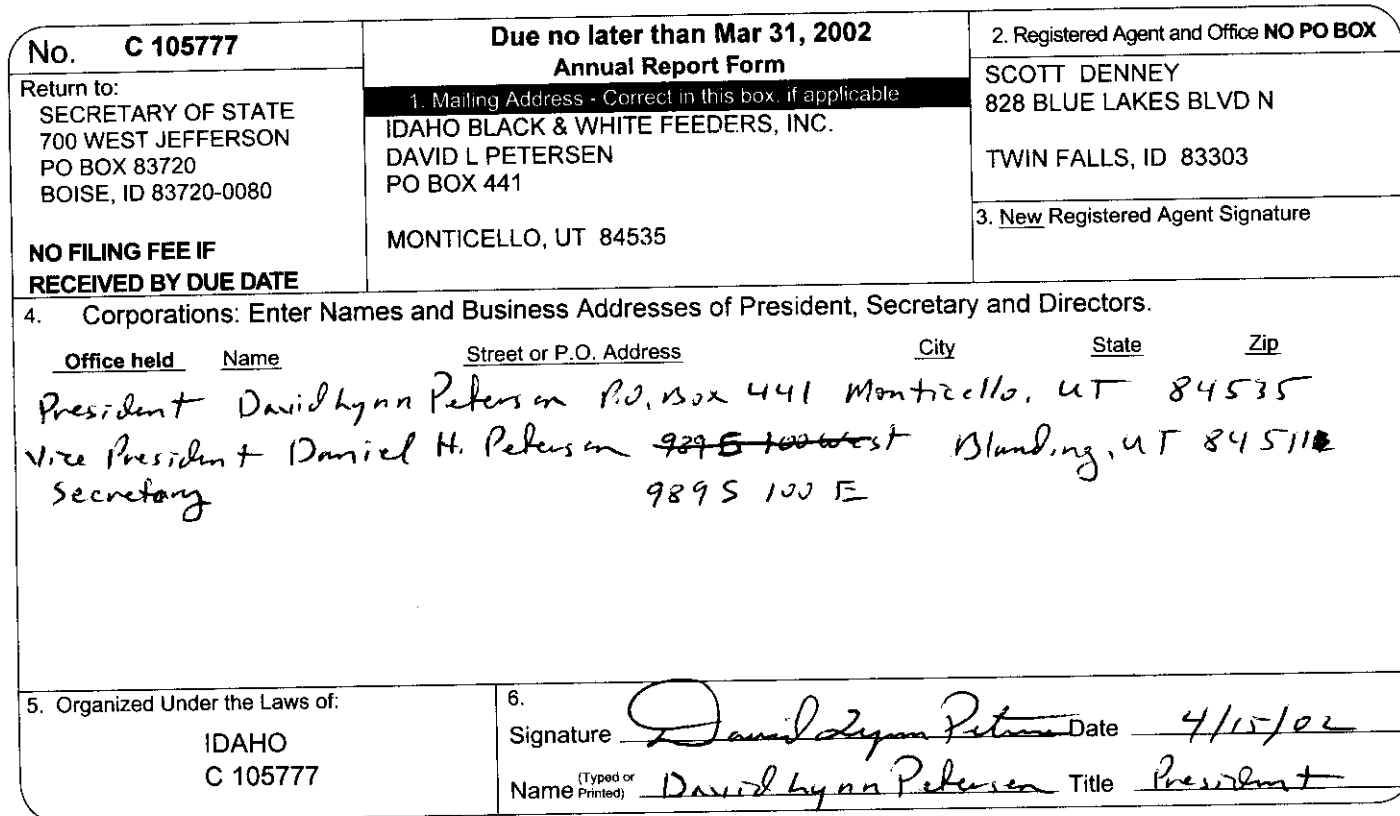 No. C 105777
Return to:
SECRETARY OF STATE
700 WEST JEFFERSON
PO BOX 83720
BOISE, ID 83720-0080
NO FILING FEE IF
RECEIVED BY DUE DATE
Due no later than Mar 31, 2002
Annual Report Form
1. Mailing Address - Correct in this box, if applicable
IDAHO BLACK & WHITE FEEDERS, INC.
DAVID L PETERSEN
PO BOX 441
MONTICELLO, UT 84535
2. Registered Agent and Office NO PO BOX
SCOTT DENNEY
828 BLUE LAKES BLVD N
TWIN FALLS, ID 83303
3. New Registered Agent Signature
4. Corporations: Enter Names and Business Addresses of President, Secretary and Directors.
Office held Name Street or P.O. Address City State Zip
President David Lynn Petersen P.O. Box 441 Monticello, UT 84535
Vice President Daniel H. Petersen Blanding, UT 84511
Secretary 989 S 100 E
5. Organized Under the Laws of:
IDAHO
C 105777
6.
Signature David Lynn Petersen Date 4/15/02
Name (Typed or Printed) David Lynn Petersen Title President